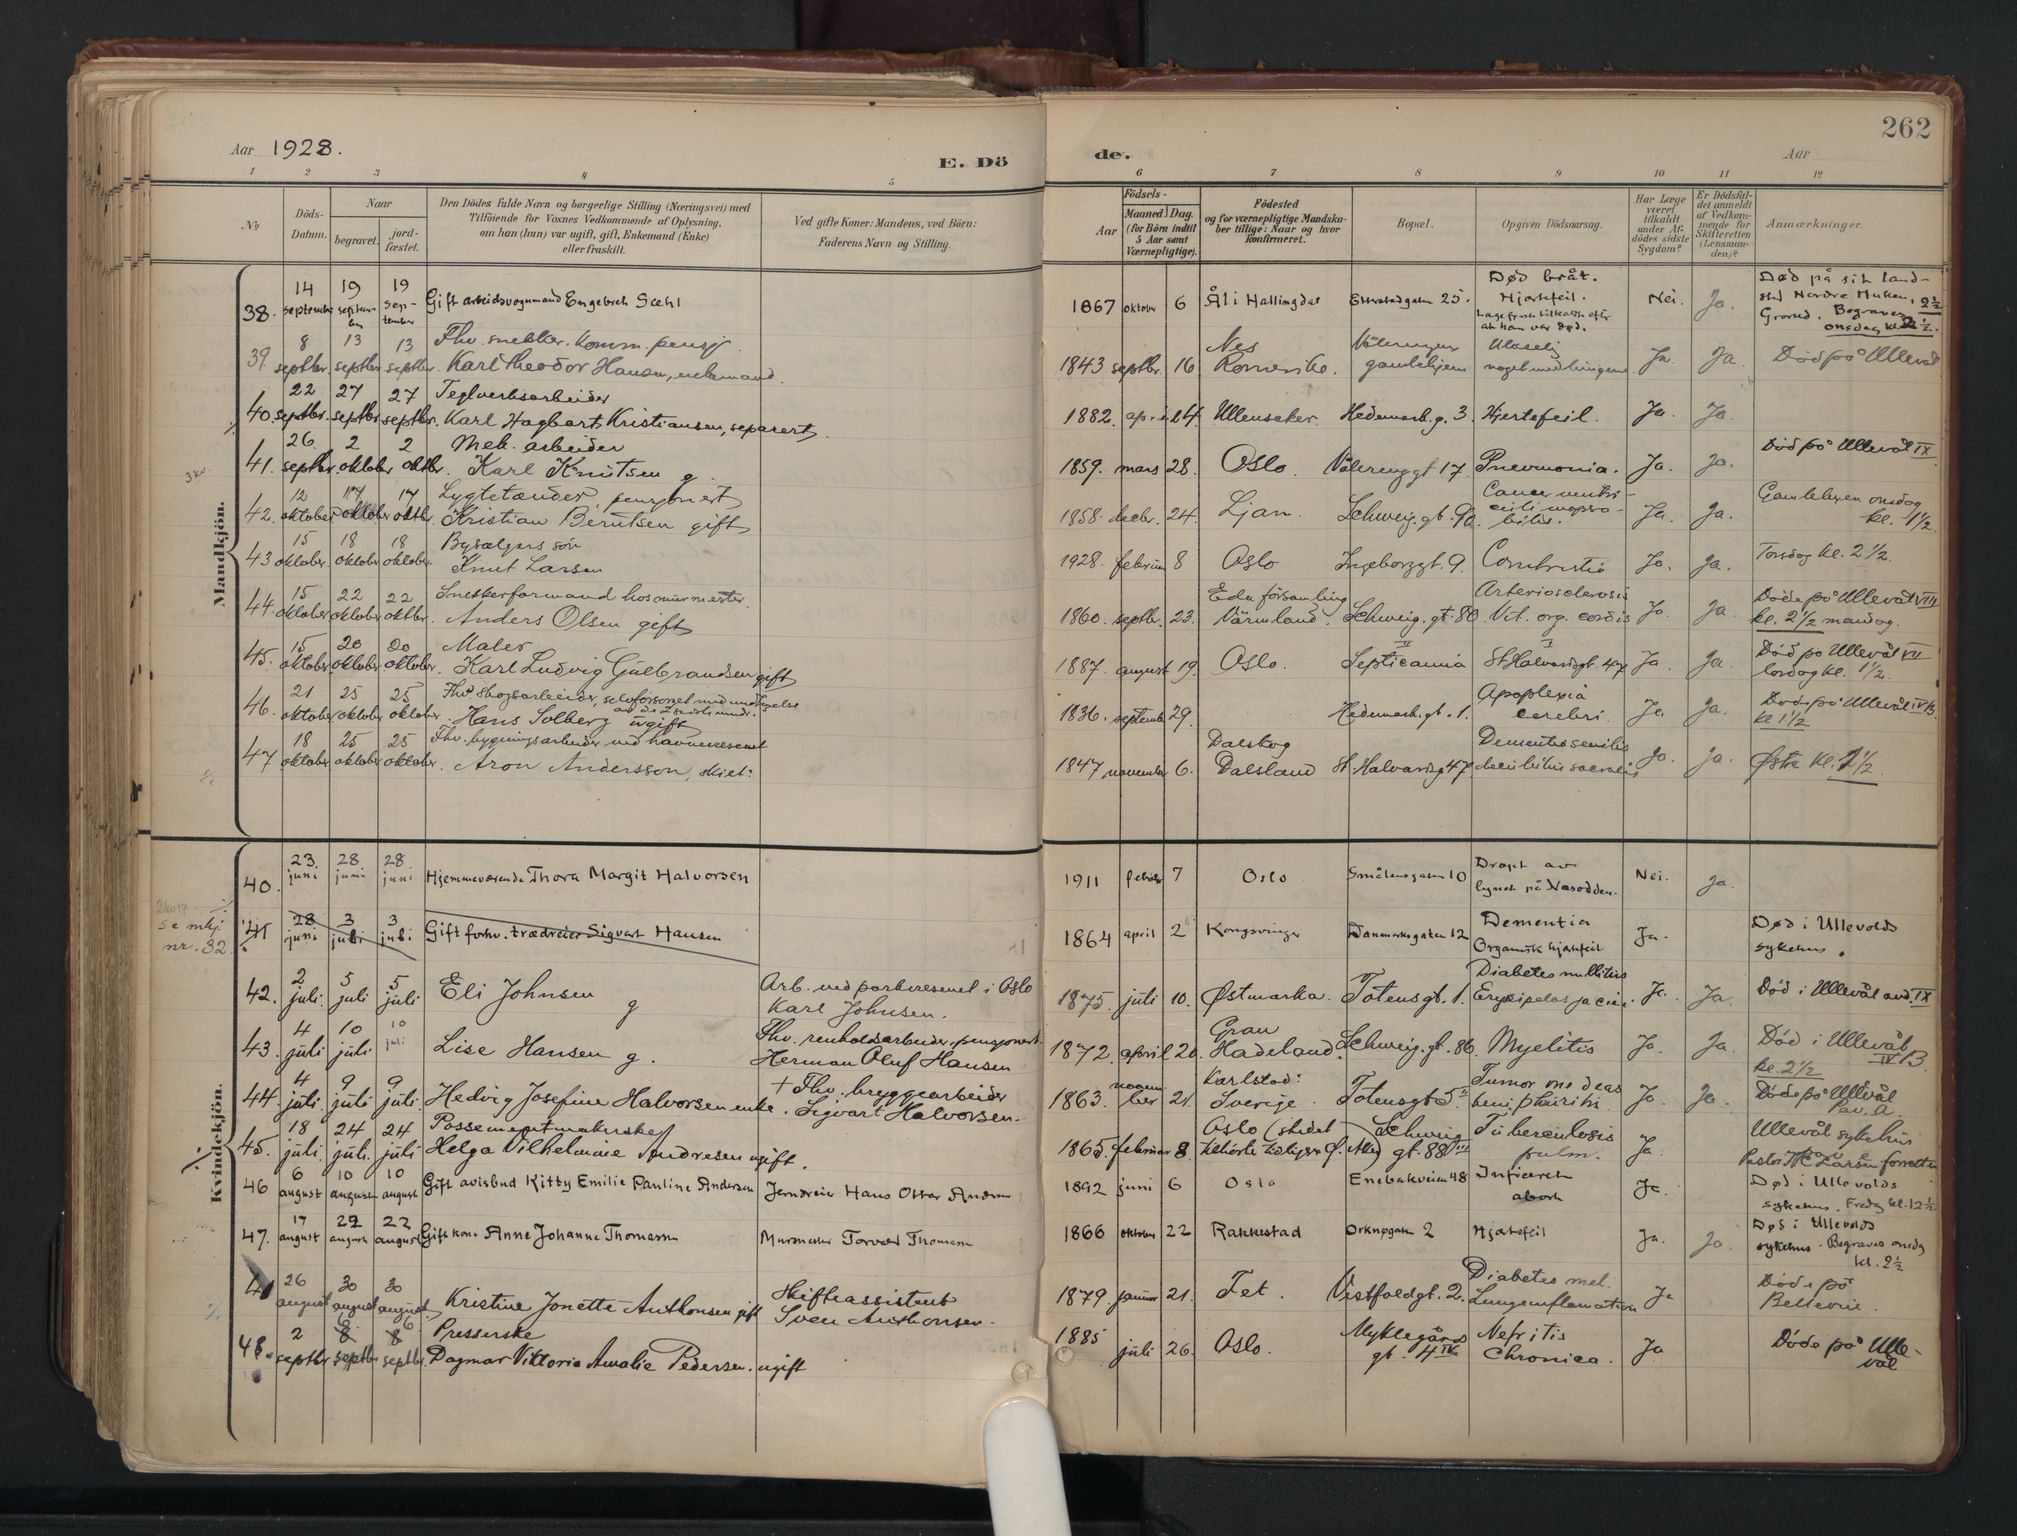 262
Aar 1928.
E. Dö
de.
Aar
1 2 3 4 5 6 7 8 9 10 11 12
No
Döds-Datum.
Naar
begravet.
jord-fæstet.
Den Dödes fulde Navn og borgerlige Stilling (Næringsvei) med
Tilföiende for Voxnes Vedkommende af Oplysning,
om han (hun) var ugift, gift, Enkemand (Enke)
eller fraskilt.
Ved gifte Koner: Mandens, ved Börn:
Faderens Navn og Stilling.
Födsels-
Aar
Maaned
Dag
(for Börn indtil
5 Aar samt
Værnepligtige).
Födested
og for værnepligtige Mandska-
ber tillige: Naar og hvor
konfirmeret.
Bopæl.
Opgiven Dödsaarsag.
Har Læge
været
tilkaldt
under Af-
dödes sidste
Sygdom?
Er Dödsfal-
det anmeldt
af Vedkom-
mende for
Skifteretten
(Lensman-
den)?
Anmærkninger.
Mandkjön.
38. 14 september 19 september 19 september Gift arbeidsvognmand Engebret Sæhl 1867 oktober 6 Ål i Hallingdal 25. Død bråt. Hjertefeil. Læge først tilkaldt efter at han var død. Nei. Ja. Død på sit land-sted Nordre Grorud. Begraves onsdag kl. 2 1/2.
39 8 septbr. 13 septbr. 13 septbr. Fhv. snekker. komm. pensj. Karl Theodor Hansen, enkemand. 1843 septbr. 16 Nes Romerike. Vålerengen gamlehjem noget med lungene Ja. Ja. Död på Ullevål
40. 22 septbr. 27 septbr. 27 septbr. Teglverksarbeider Karl Hagbart Kristiansen, separert 1882. april 24 Ullensaker. Hedemark.g. 3 Hjertefeil. Ja. Ja.
3 kv.
41. 26 septbr. 2 oktober 2 oktbr. Mek. arbeider Karl Knutsen g 1859. mars 28. Oslo. Vålerenggt 17 Pneumonia. Ja. Ja. Död på Ullevål IX
42. 12 oktober 17 oktober 17 oktbr. Lygtetænder, pensjonert Kristian Berntsen gift 1858. decbr. 24. Ljan. Schweig.gt. 9a Cancer ventri-culi inopera-bilis. Ja. Ja. Gamlebyen onsdag kl. 1 1/2.
43 15 oktober. 18 oktober 18 oktober. Bysælgers søn Knut Larsen 1928. februar 8 Oslo Ingeborggt. 9. Combustio Ja. Ja. Torsdag kl. 2 1/2.
44. 15 oktober 22 oktober 22 oktbr. Snekkerformand hos murmester. Anders Olsen gift 1860. septbr. 23. Eda församling Värmland. Schweig.gt. 80 IV Arteriosclerosis Vit. org. cordis Ja. Ja. Döde på Ullevål VIII kl. 2 1/2 mandag.
45. 15 oktober 20 oktober Do oktober. Maler Karl Ludvig Gulbrandsen gift 1887. august 19. Oslo. Septicæmia St. Halvardsgt. 47 Ja. Ja. Död på Ullevål VII lördag kl. 1 1/2.
46. 21 oktober 25 oktober 25 oktober Fhv. skogsarbeider, selvforsörget med understøttelse Hans Solberg ugift 1836. september 29. Hedemark.gt. 1. Apoplexia cerebri. Ja. Ja. Döde på Ullevål IV B. kl 1 1/2
47 18 oktober 25 oktober 25 oktober. Fhv. bygningsarbeider ved havnevesenet Aron Andersson, skilt. 1847 november 6. Dalskog Dalsland St. Halvardsg 47 Dementia senilis decubitus sacralis Ja. Ja. Østre kl. 1 1/2
Kvindekjön.
40. 23. juni 28. juni 28. juni Hjemmeværende Thora Margit Halvorsen 1911 februar 7 Oslo Smålensgaten 10 Dræpt av lynet på Næsodden. Nei. Ja.
Se mkj. nr. 32
41 28 juni 3 juli 3 juli Gift forhv. trædreier Sigvart Hansen 1864 april 2 Kongsvinger Danmarksgaten 12 Dementia Organisk hjertefeil Ja. Død i Ullevolds sykehus.
42. 2 juli. 5 juli 5 juli Eli Johnsen g Arb. ved parkvesenet i Oslo Karl Johnsen. 1875 juli 10. Østmarka. Totensgt. 1. Diabetes mellitus Erysipelas faciei. Ja. Ja. Död i Ullevål avd. IX
43. 4 juli 10 juli 10 juli Lise Hansen g. Fhv. renholdsarbeider, pensjonert. Herman Oluf Hansen 1872. april 20. Gran Hadeland. Schweig.gt. 86 Myelitis Ja. Ja. Död i Ullevål IV B kl. 2 1/2
44. 4 juli. 9 juli 9 juli. Hedvig Josefine Halvorsen enke. + Fhv. bryggearbeider Sigvart Halvorsen. 1863. novem ber 21. Karlstad: Sverige. Totensgt 5 II Tumor Ja. Ja. Döde på Ullevål Pav. A.
45. 18 juli 24 juli. 24 juli Possementmakerske Helga Vilhelmine Andresen ugift. 1865. februar 8 Oslo Schweig gt. 88 III Tuberculosis pulm. Ja. Ullevål sykehus Pastor Larsen forretter
46 6 august 10 august 10 august Gift avisbud Kitty Emilie Pauline Andersen Jerndreier Hans Oskar Andersen 1892 juni 6 Oslo Enebakveien 48 Inficeret abort Ja. Død i Ullevolds sykehus. Fredag kl. 12 1/2
47. 17 august 22 august 22 august Gift kone Anne Johanne Thomasen Murmester Torvald Thomasen 1866 oktober 22 Rakkestad Orknøgaten 2 Hjertefeil Ja. Ja. Død i Ullevolds sykehus. Begraves onsdag kl. 2 1/2
26 august 30 august 30 august Kristine Jonette Anthonsen gift Skifteassistent Sven Anthonsen. 1879 januar 21. Fet. Vestfoldgt. 2. Diabetes mel. Lungeinflamation Ja Döde på Bellevue.
48. 2 septbr 6 8 septbr 6 8 septbr. Presserske Dagmar Viktoria Amalie Pedersen. ugift 1885 juli 26. Oslo. Myklegårds gt. 4 IV Nefritis Chronica. Ja Döde på Ulle-vål